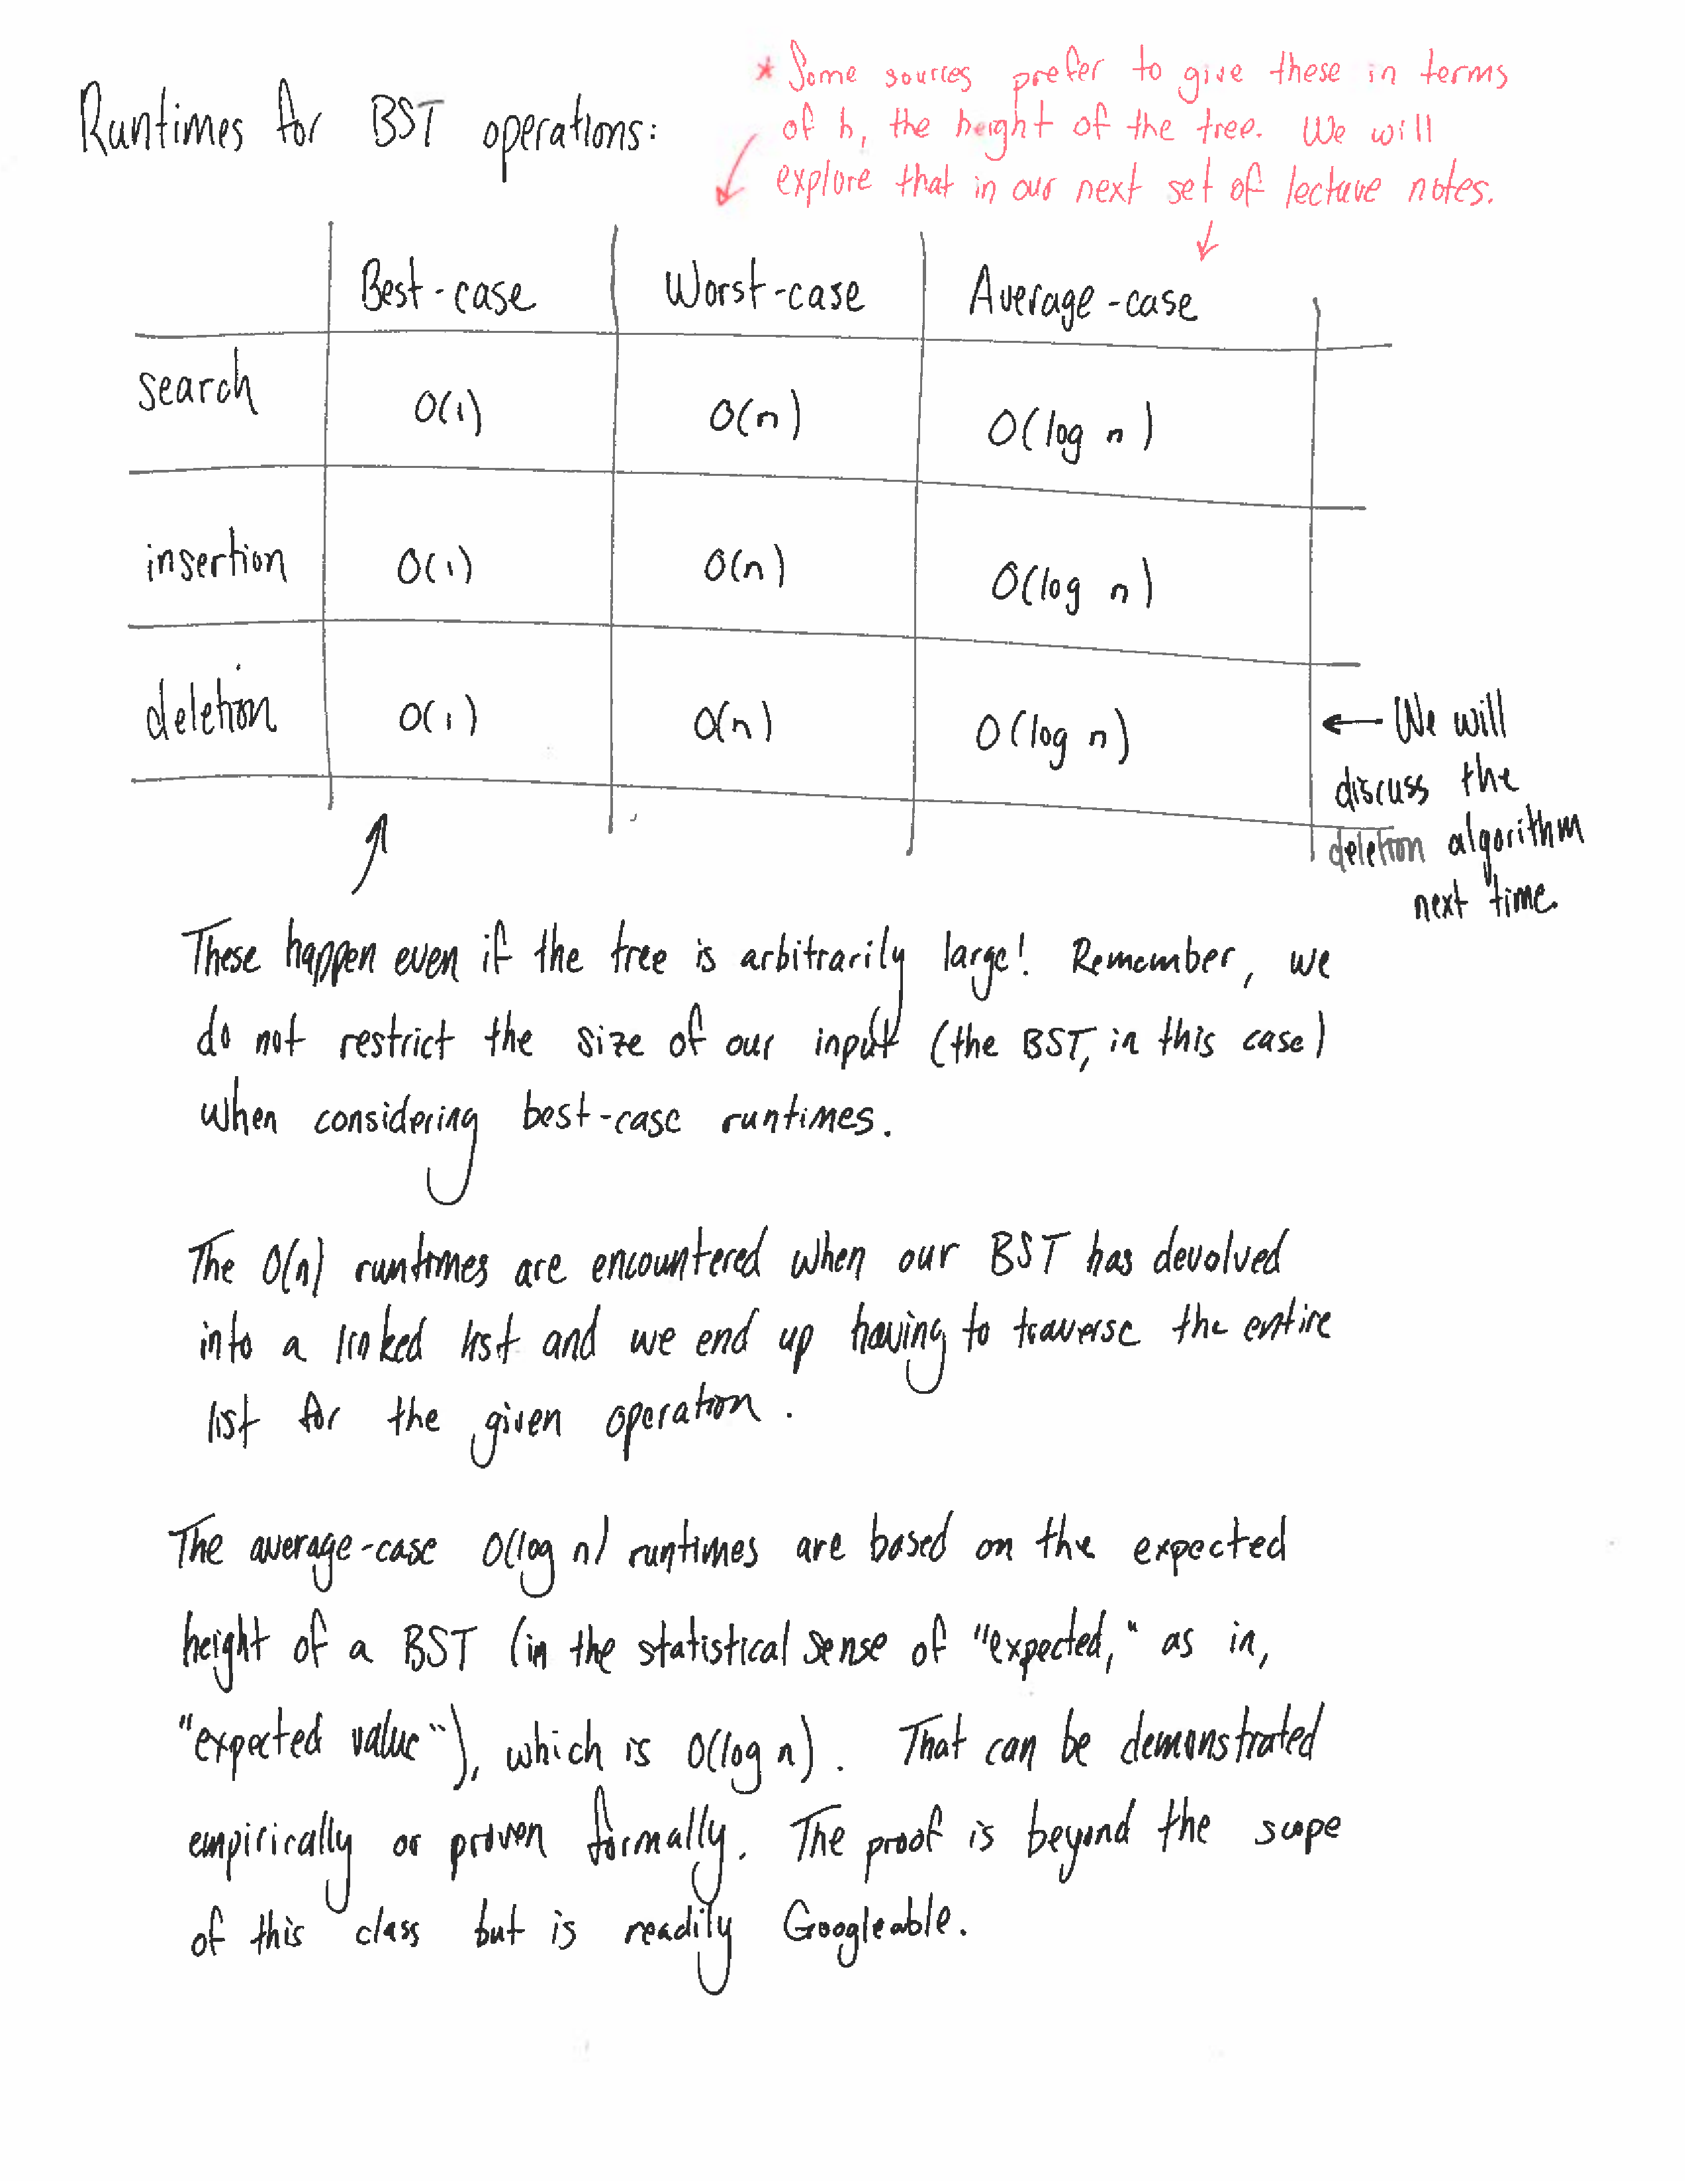 * Some sources prefer to give these in terms
of h, the height of the tree. We will
explore that in our next set of lecture notes.
Runtimes for BST operations:
Best-case Worst-case Average-case
search O(1) O(n) O(log n)
insertion O(1) O(n) O(log n)
deletion O(1) O(n) O(log n)
← We will
discuss the
deletion algorithm
next time.
These happen even if the tree is arbitrarily large! Remember, we
do not restrict the size of our input (the BST, in this case)
when considering best-case runtimes.
The O(n) runtimes are encountered when our BST has devolved
into a linked list and we end up having to traverse the entire
list for the given operation.
The average-case O(log n) runtimes are based on the expected
height of a BST (in the statistical sense of "expected," as in,
"expected value"), which is O(log n). That can be demonstrated
empirically or proven formally. The proof is beyond the scope
of this class but is readily Googleable.